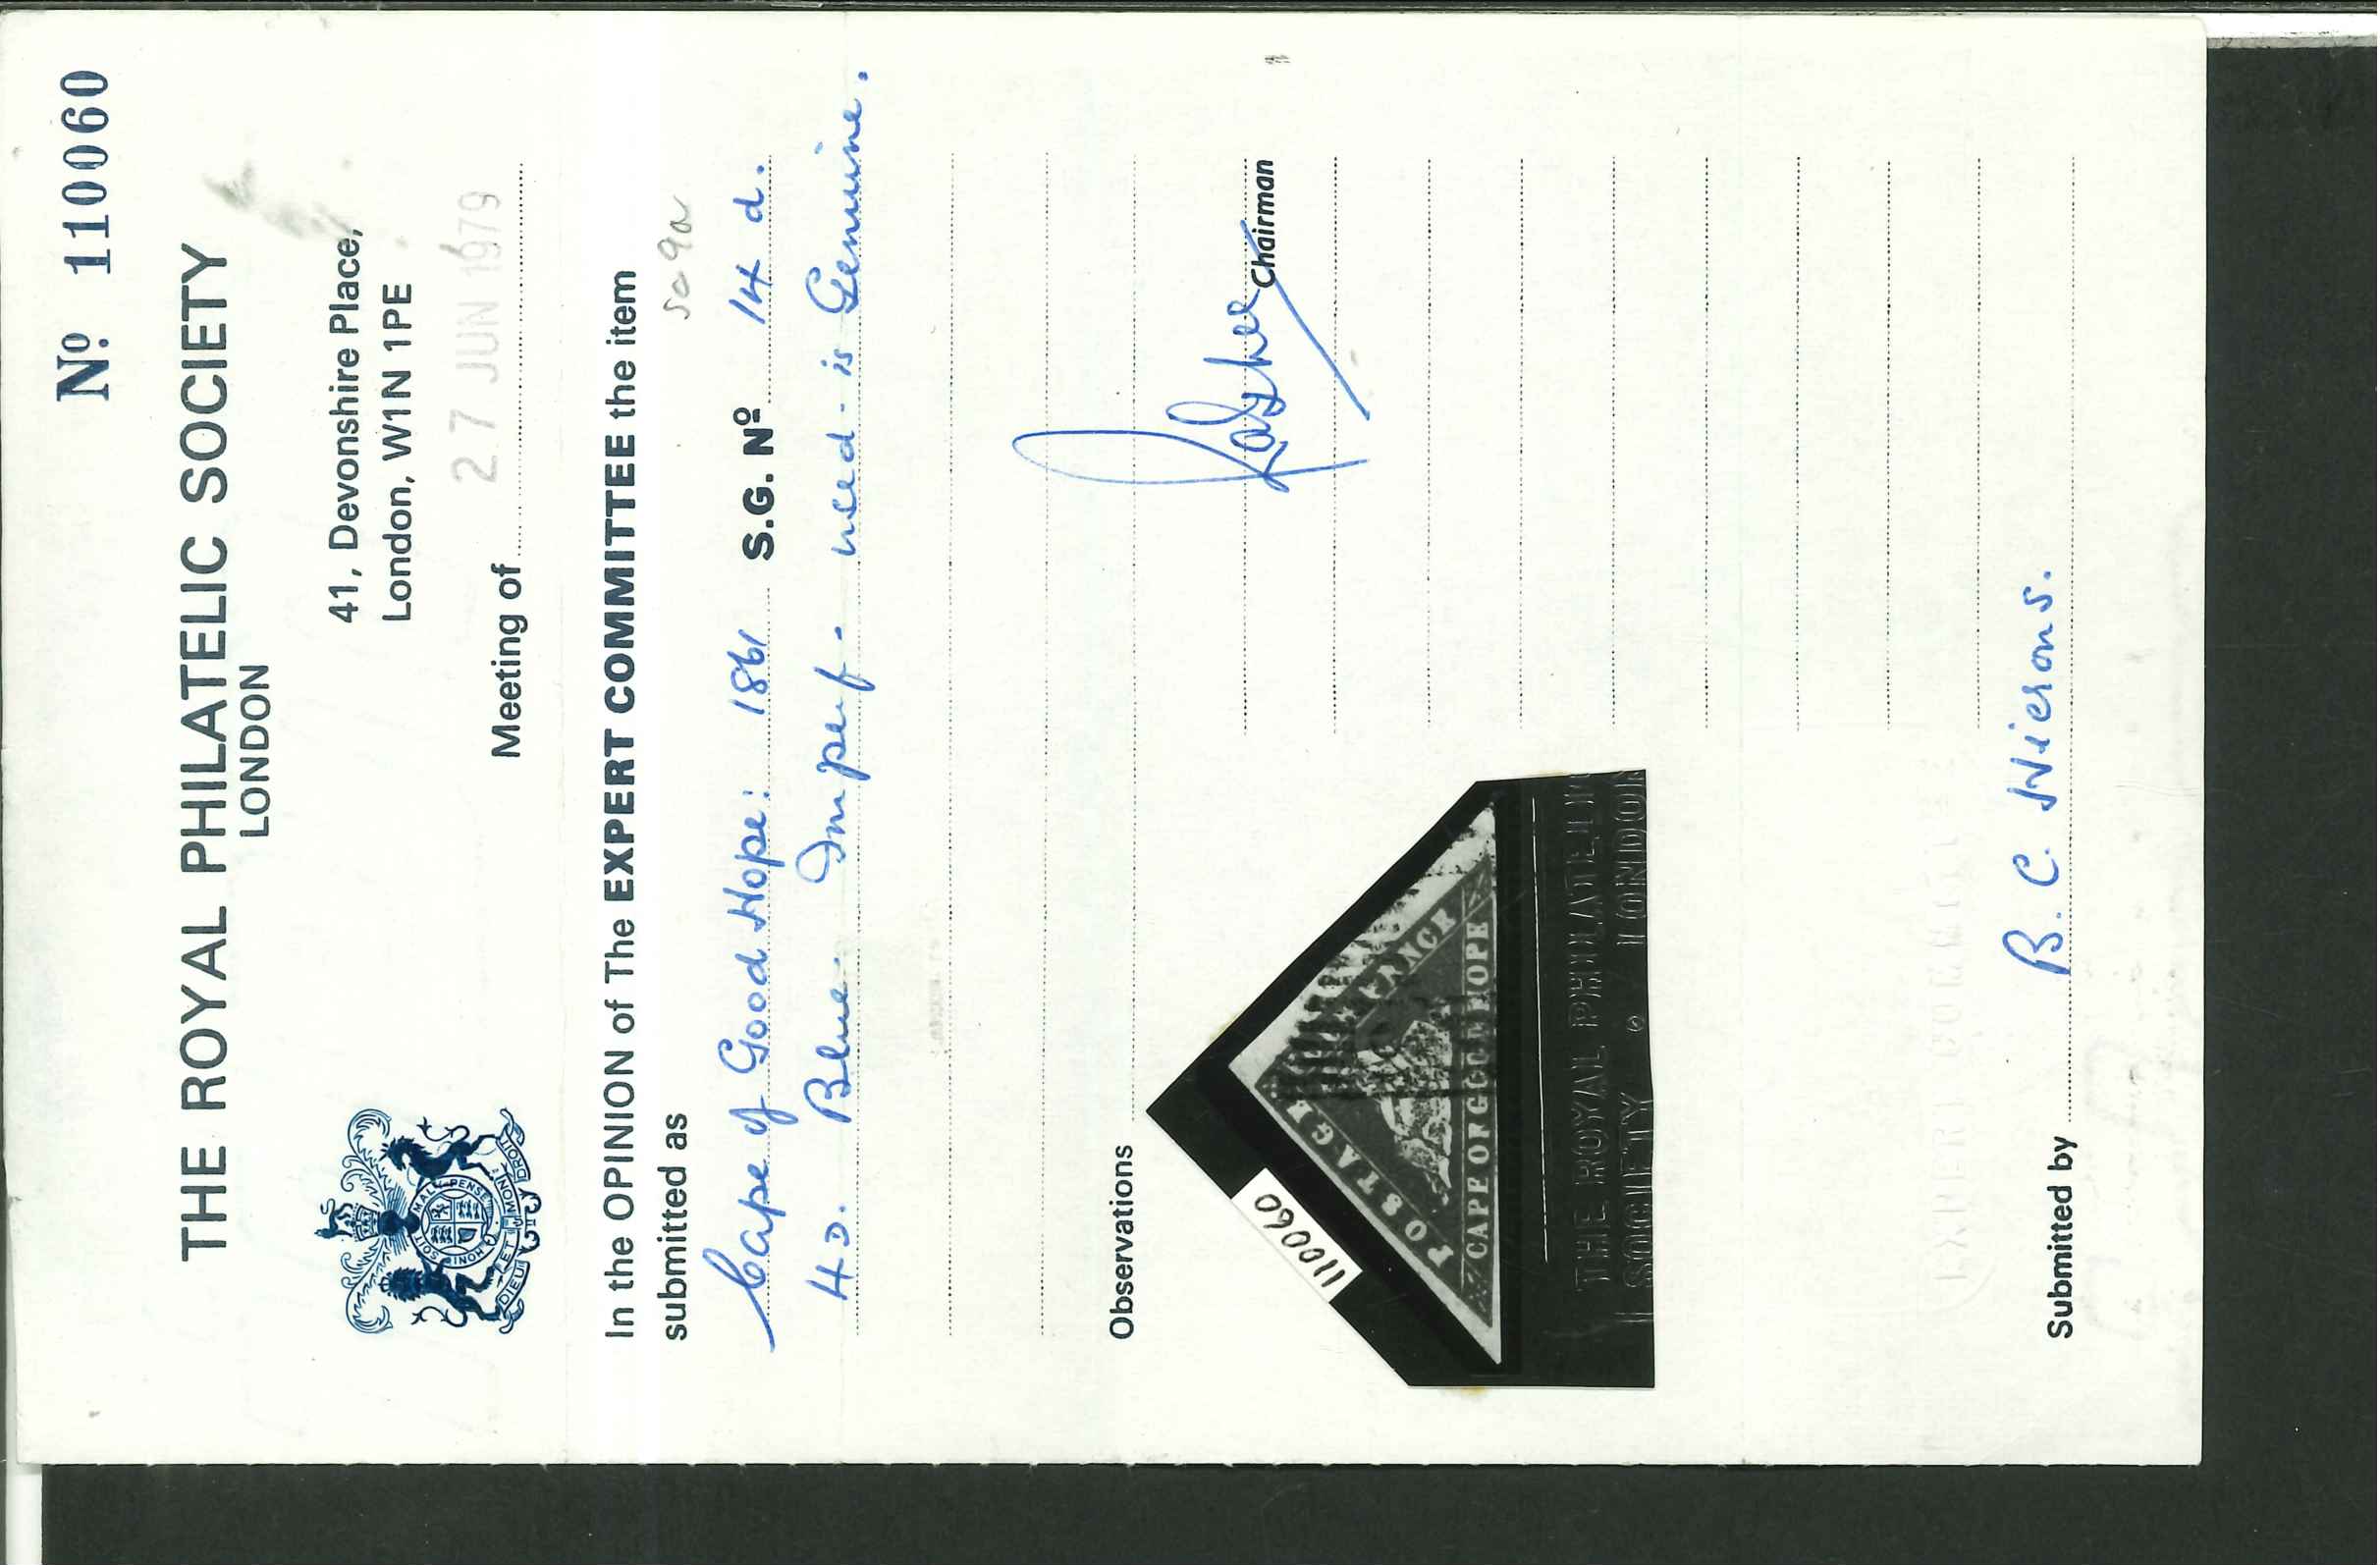 Nº 110060
THE ROYAL PHILATELIC SOCIETY
LONDON
41, Devonshire Place,
London, W1N 1PE
Meeting of 27 JUN 1979
HONI SOIT MAL Y PENSE
DIEU ET MON DROIT
In the OPINION of The EXPERT COMMITTEE the item
submitted as
Sc 9a
Cape of Good Hope: 1861 S.G. Nº 14 d.
4D. Blue. Imperf. used. is Genuine.
Observations
Chairman
110060
POSTAGE
CAPE OF GOOD HOPE
THE ROYAL PHILATELIC
SOCIETY LONDON
EXPERT COMMITTEE
Submitted by B. C. Hierons.